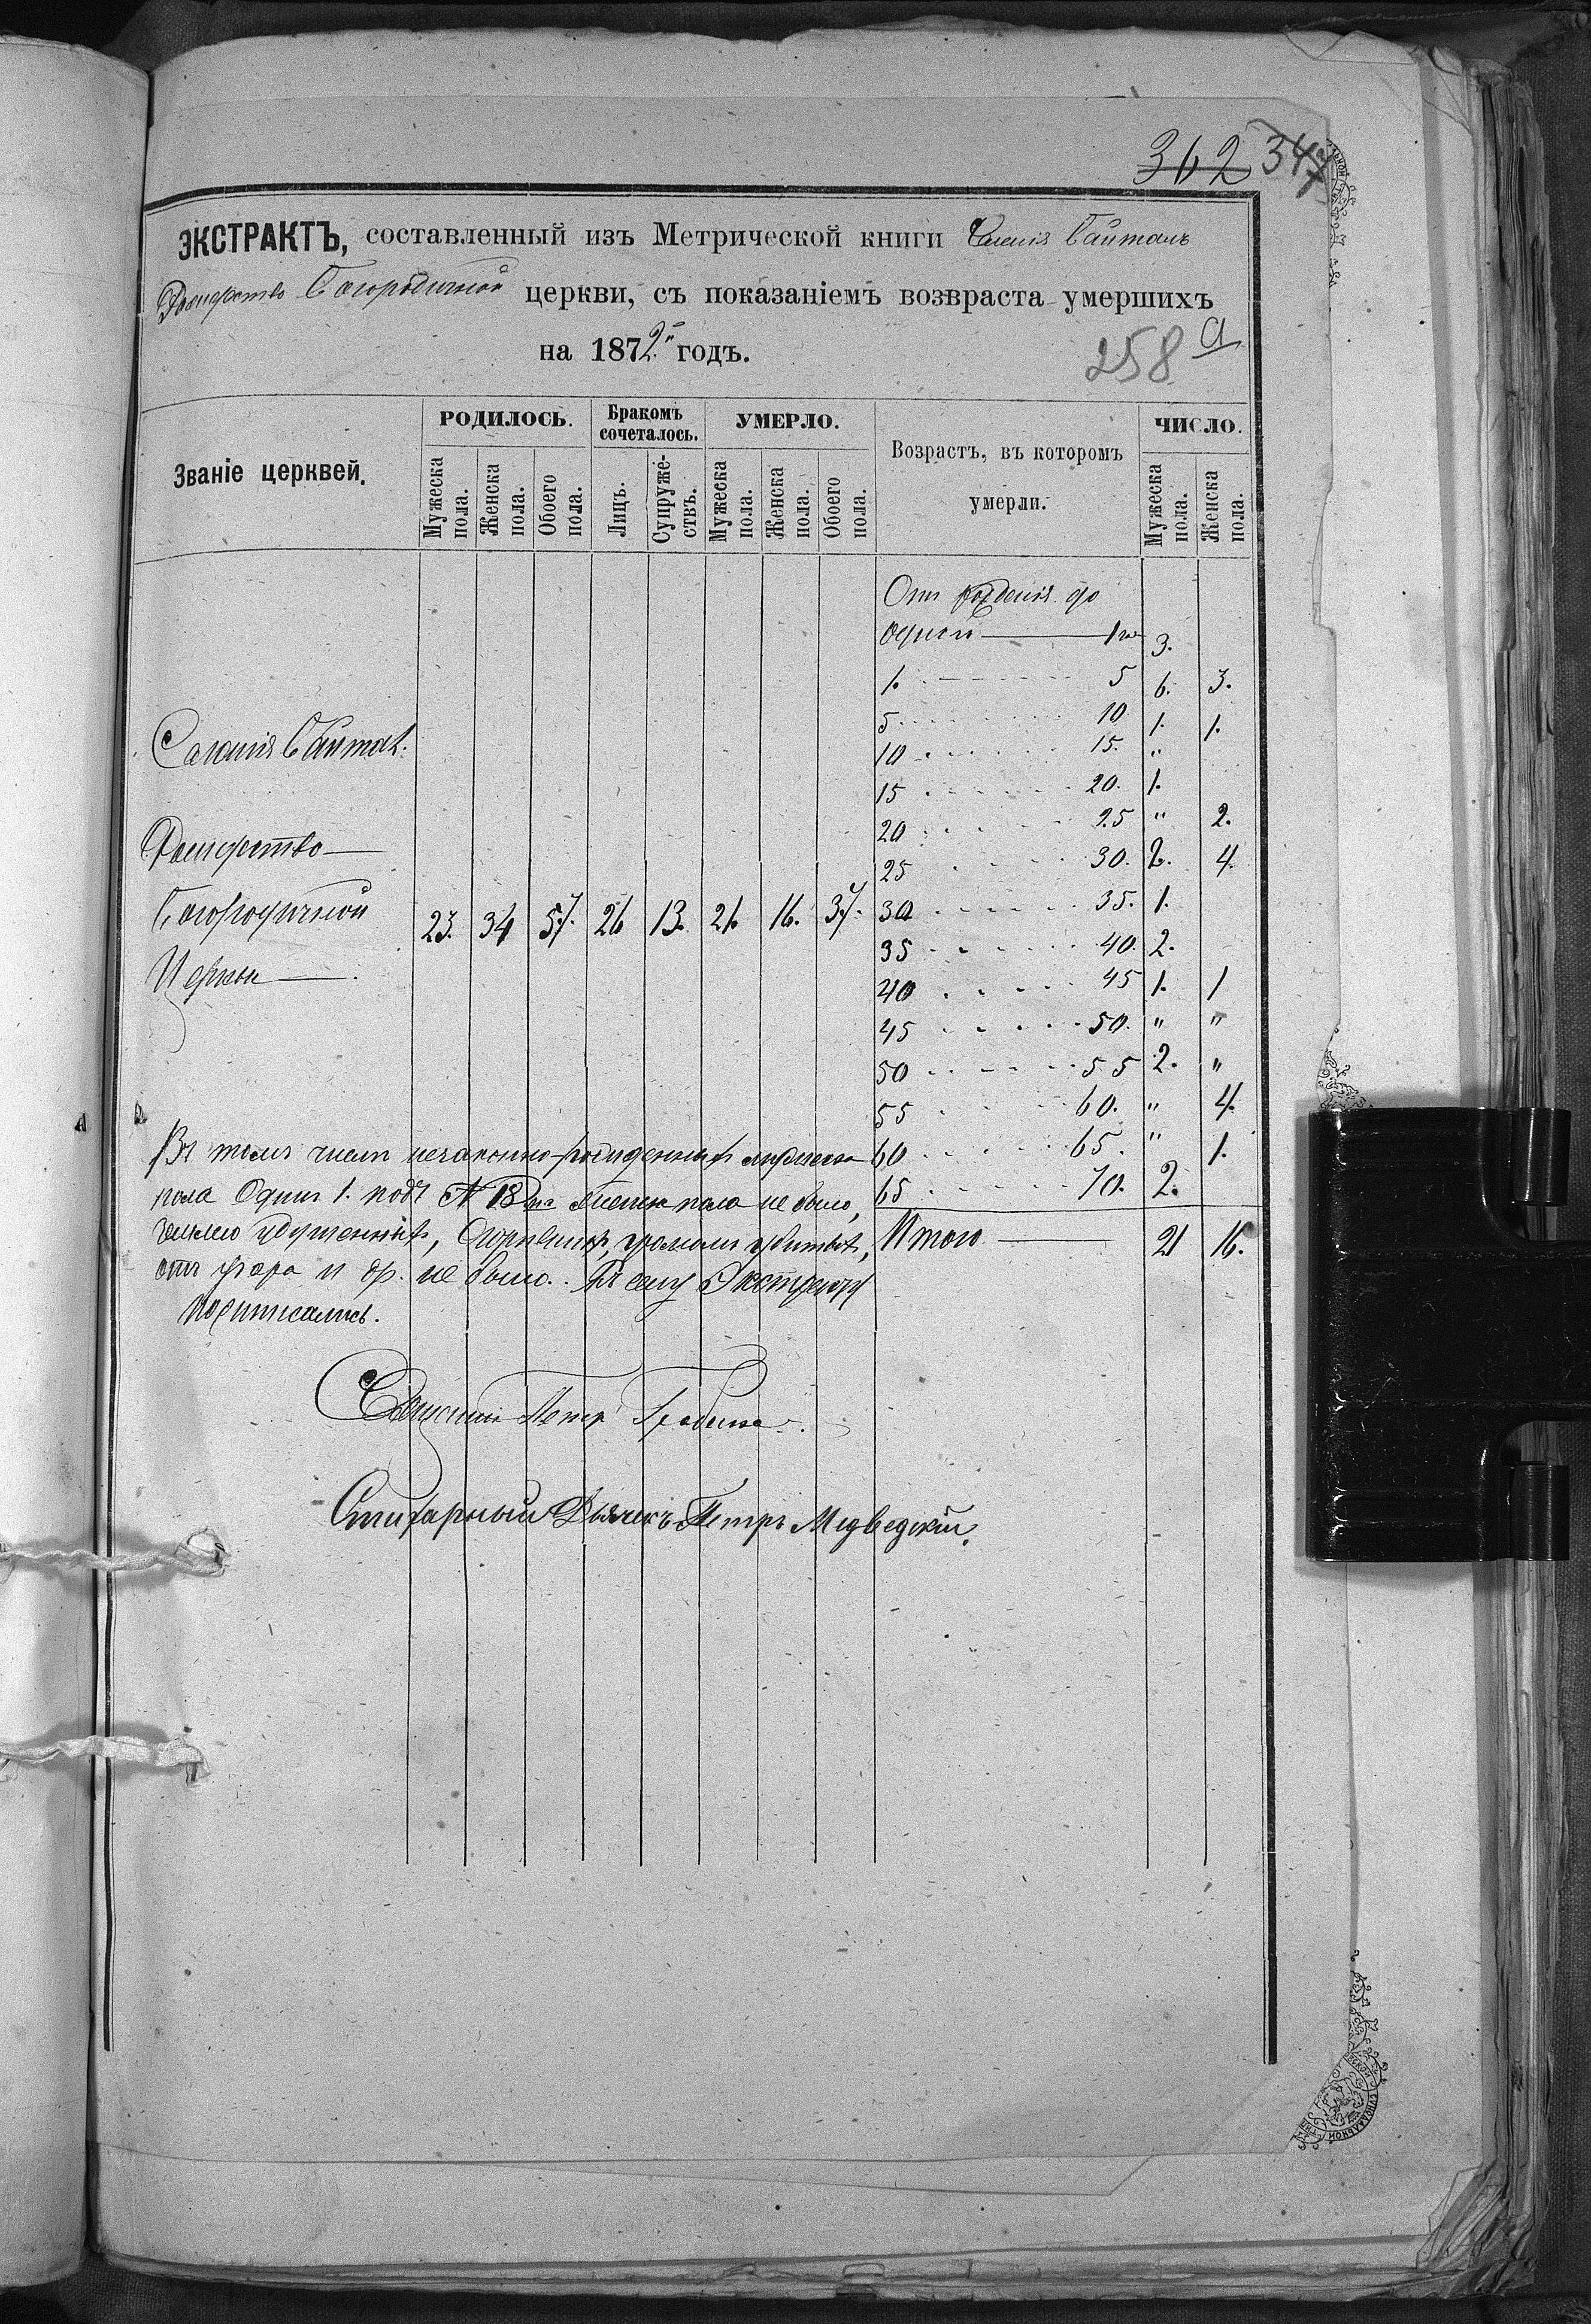 362 347
ЭКСТРАКТЪ, составленный изъ Метрической книги Селенія Баймакъ
Рождество Богородичной церкви, съ показаніемъ возвраста умершихъ
на 1872 годъ.
258 а
Званіе церквей.
РОДИЛОСЬ.
Бракомъ сочеталось.
УМЕРЛО.
Возрастъ, въ которомъ умерли.
ЧИСЛО.
Мужеска пола.
Женска пола.
Обоего пола.
Лицъ.
Супружествъ.
Мужеска пола.
Женска пола.
Обоего пола.
Мужеска пола.
Женска пола.
От рожденія до
одного 1го 3.
1. 5 6. 3.
5 10 1. 1.
10 15. "
15 20. 1.
20 25 " 2.
25 30. 2. 4.
30 35. 1.
35 40. 2.
40 45 1. 1
45 50. " "
50 55 2. "
55 60. " 4.
60 65. " 1.
65 70. 2.
Итого 21 16.
Селенія
Рождество
Богородичной
Церкви
23. 34 57. 26 13. 21. 16. 37.
Въ томъ числѣ незаконно-рожденныхъ мужеска
пола Одинъ 1. подъ № 18 женска пола не было,
умершихъ, громомъ убитыхъ,
отъ угара и др. не было. Къ сему Экстракту
подписались.
Священникъ Петръ
Стихарный Дьячекъ Петръ Медведскій.